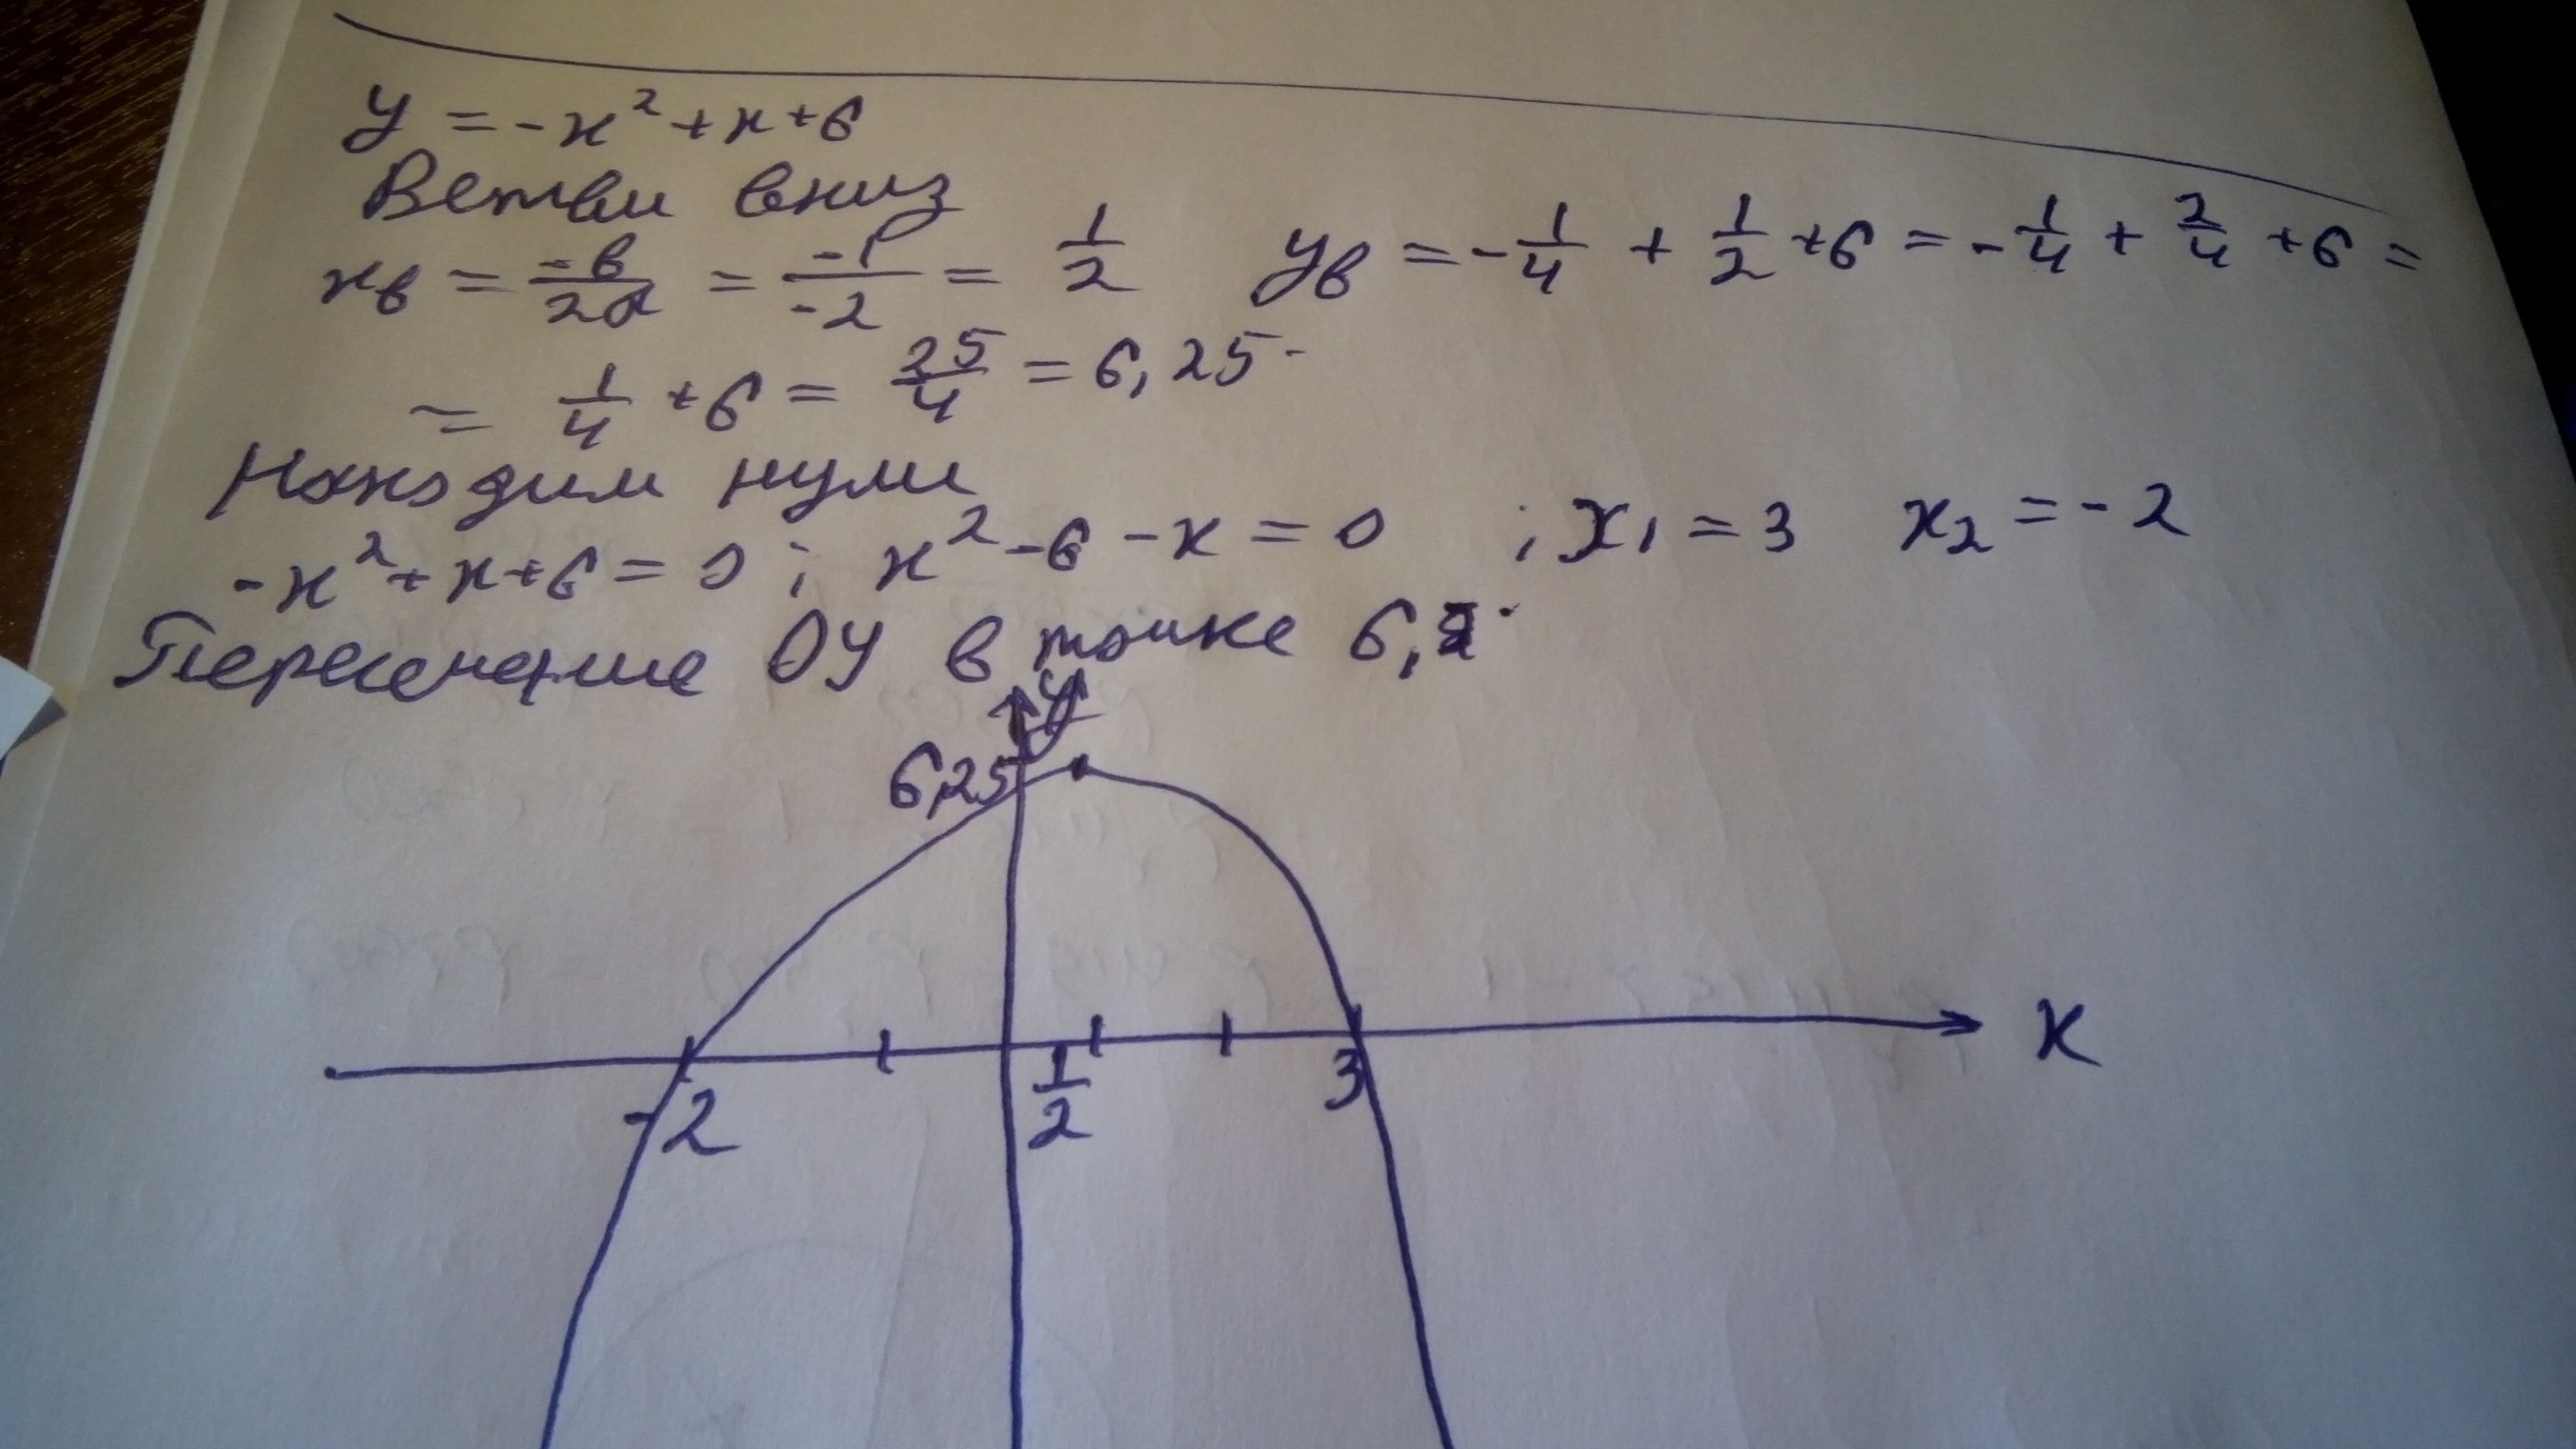 y = -x² + x + 6
Ветви вниз
xв = -в/2a = -1/-2 = 1/2   yв = -1/4 + 1/2 + 6 = -1/4 + 2/4 + 6 =
= 1/4 + 6 = 25/4 = 6,25
Находим нули
-x² + x + 6 = 0 ; x² - 6 - x = 0 ; x₁ = 3   x₂ = -2
Пересечение ОУ в точке 6,
y
6,25
x
-2   1/2   3